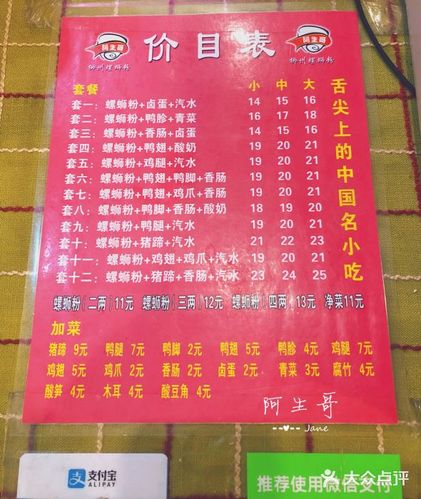 阿生哥
柳州螺蛳粉
价目表
阿生哥
柳州螺蛳粉
套餐 小 中 大
套一：螺蛳粉+卤蛋+汽水 14 15 16
套二：螺蛳粉+鸭胗+青菜 16 17 18
套三：螺蛳粉+香肠+卤蛋 14 15 16
套四：螺蛳粉+鸭翅+酸奶 19 20 21
套五：螺蛳粉+鸡腿+汽水 19 20 21
套六：螺蛳粉+鸭翅+鸭脚+香肠 19 20 21
套七：螺蛳粉+鸭翅+鸡爪+香肠 19 20 21
套八：螺蛳粉+鸭脚+香肠+酸奶 18 19 20
套九：螺蛳粉+鸭腿+汽水 19 20 21
套十：螺蛳粉+猪蹄+汽水 21 22 23
套十一：螺蛳粉+鸡翅+鸡爪+汽水 19 20 21
套十二：螺蛳粉+猪蹄+香肠+汽水 23 24 25
舌尖上的中国名小吃
螺蛳粉二两11元 螺蛳粉三两12元 螺蛳粉四两13元 净菜11元
加菜
猪蹄 9元 鸭腿 7元 鸭脚 2元 鸭翅 5元 鸭胗 4元 鸡腿 7元
鸡翅 5元 鸡爪 2元 香肠 2元 卤蛋 2元 青菜 3元 腐竹 4元
酸笋 4元 木耳 4元 酸豆角 4元
阿生哥
Jane
支付宝
ALIPAY
推荐使用微信支付
大众点评